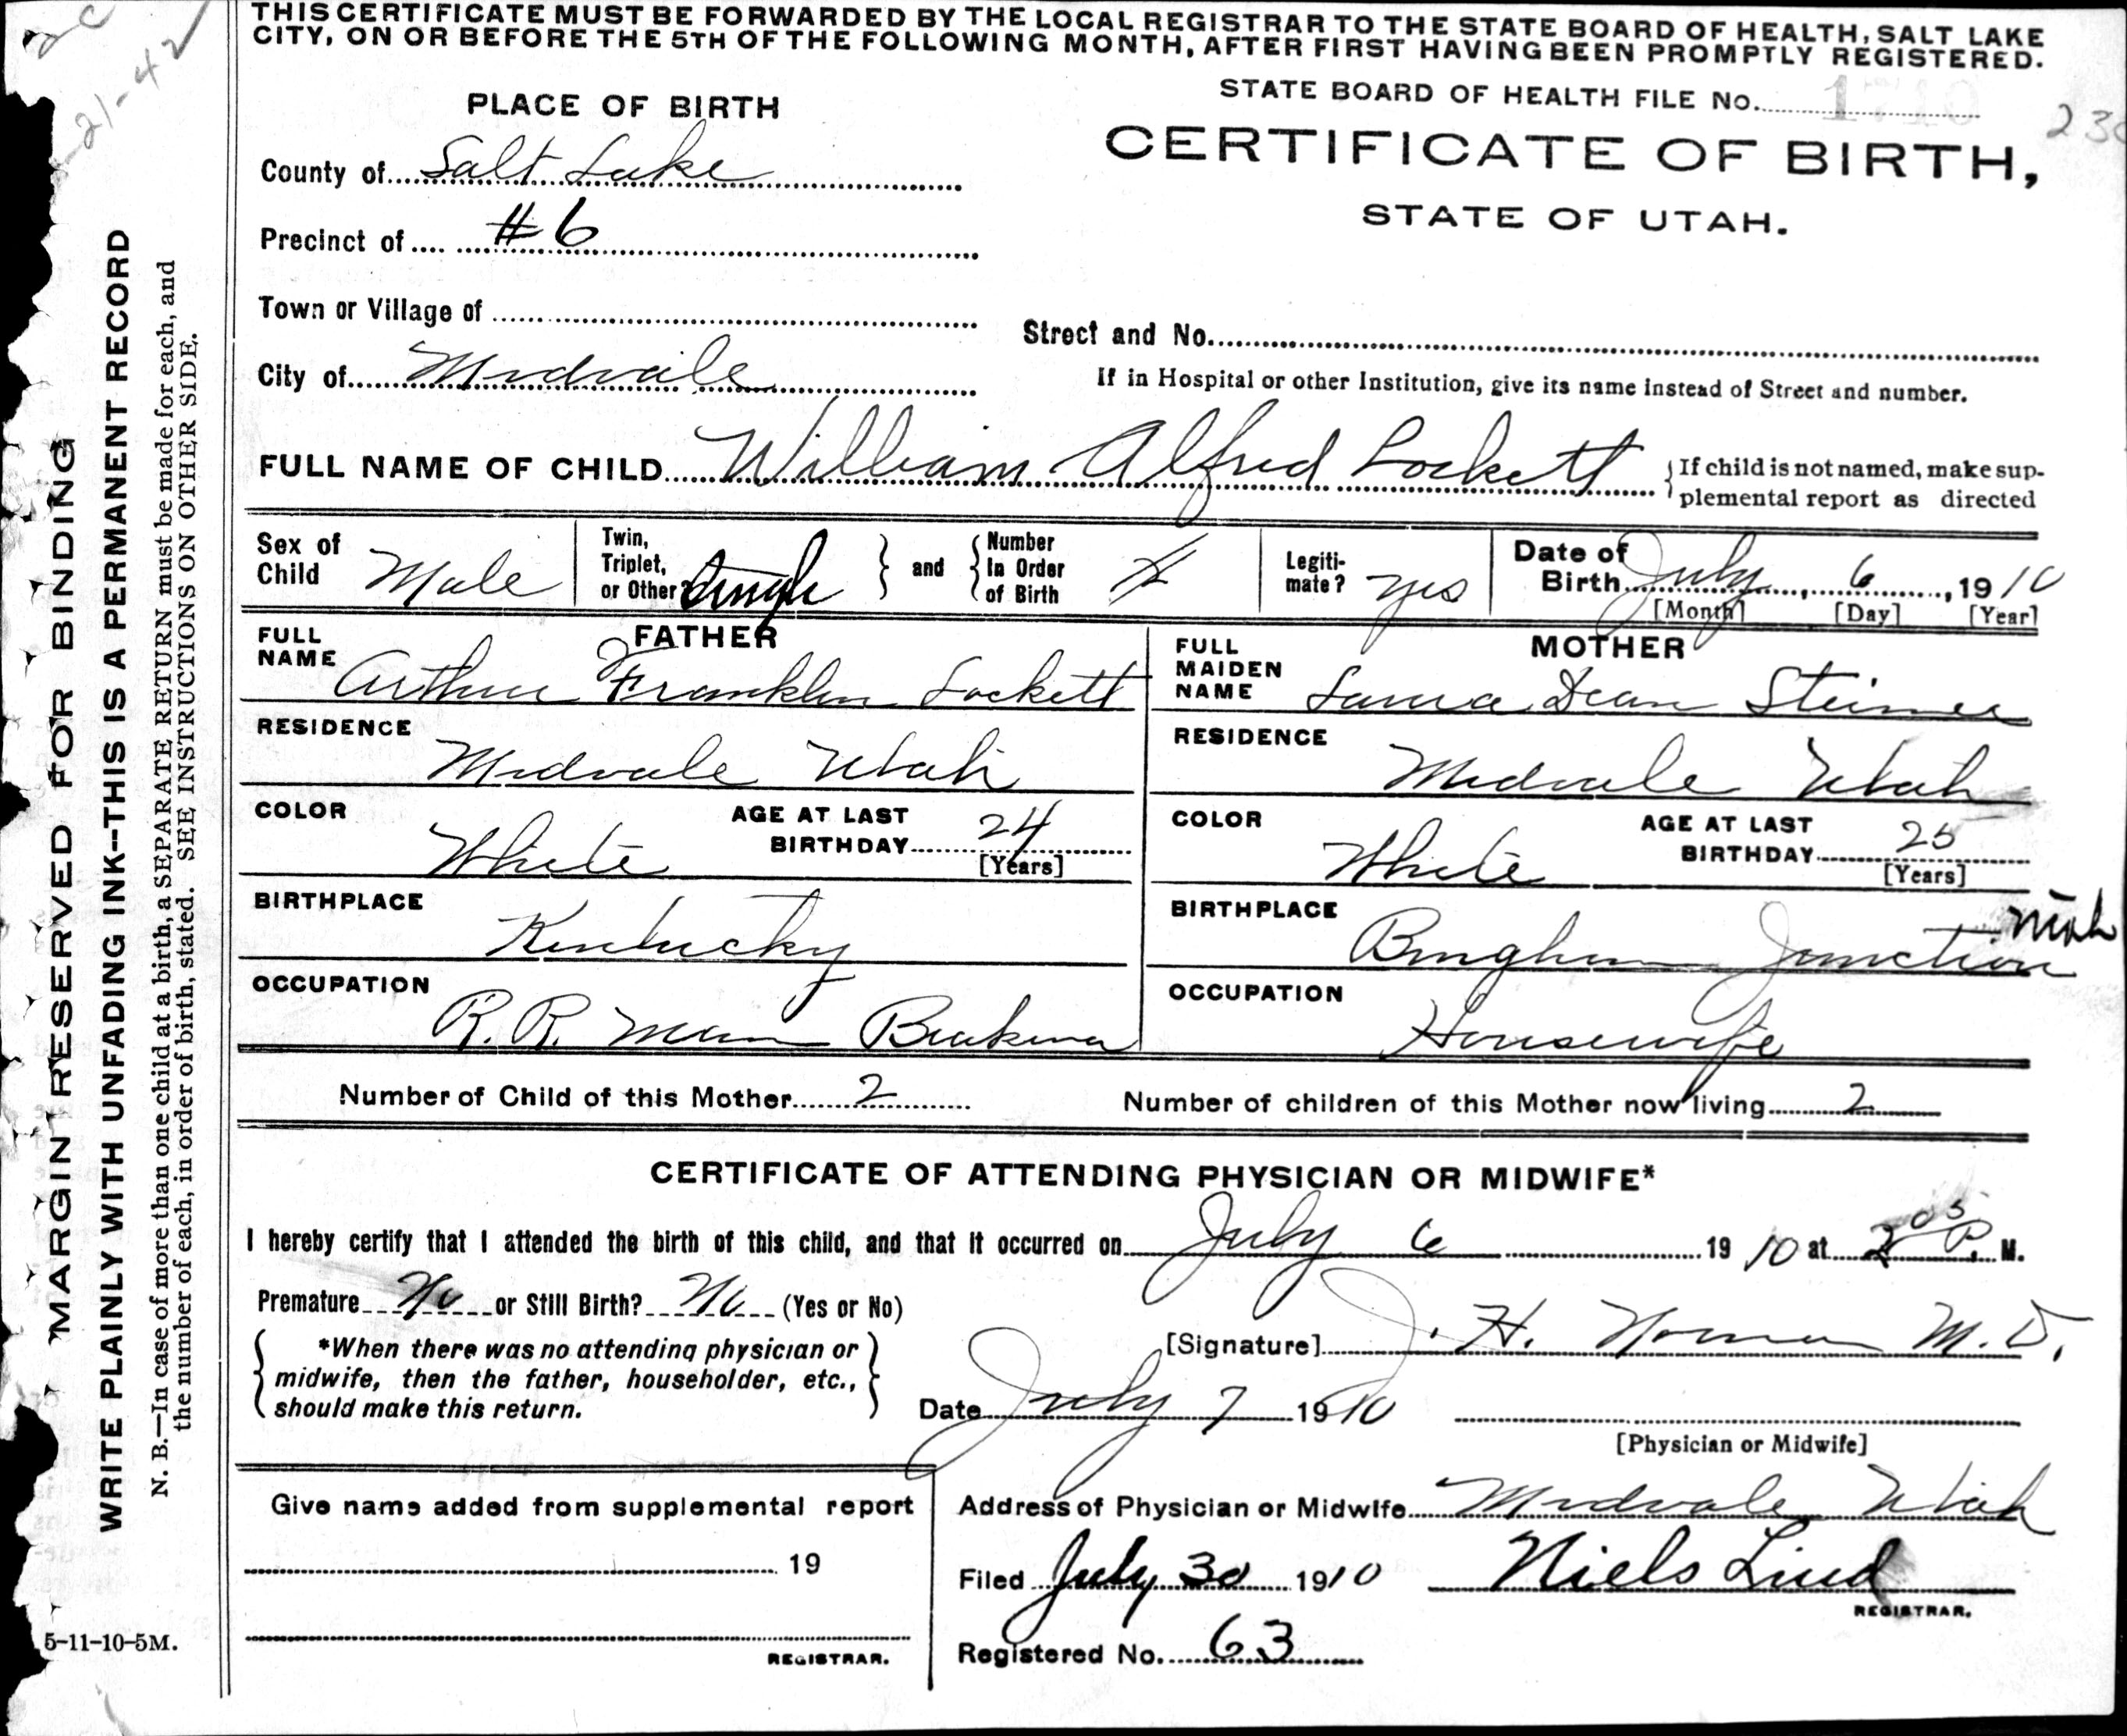 THIS CERTIFICATE MUST BE FORWARDED BY THE LOCAL REGISTRAR TO THE STATE BOARD OF HEALTH, SALT LAKE
CITY, ON OR BEFORE THE 5TH OF THE FOLLOWING MONTH, AFTER FIRST HAVING BEEN PROMPTLY REGISTERED.
21-42
STATE BOARD OF HEALTH FILE No. 1710
PLACE OF BIRTH
CERTIFICATE OF BIRTH,
STATE OF UTAH.
County of Salt Lake
Precinct of #6
Town or Village of
Street and No.
City of Midvale
If in Hospital or other Institution, give its name instead of Street and number.
FULL NAME OF CHILD William Alfred Lockett
If child is not named, make sup-
plemental report as directed
Sex of Child Male
Twin, Triplet, or Other? Single and Number In Order of Birth
Legiti-mate? yes
Date of Birth July 6, 1910
[Month] [Day] [Year]
FATHER
FULL NAME Arthur Franklin Lockett
RESIDENCE Midvale Utah
COLOR White AGE AT LAST BIRTHDAY 24
[Years]
BIRTHPLACE Kentucky
OCCUPATION R.R. man Brakeman
MOTHER
FULL MAIDEN NAME Laura Dean Steiner
RESIDENCE Midvale Utah
COLOR White AGE AT LAST BIRTHDAY 25
[Years]
BIRTHPLACE Bingham Junction Utah
OCCUPATION Housewife
Number of Child of this Mother 2 Number of children of this Mother now living 2
CERTIFICATE OF ATTENDING PHYSICIAN OR MIDWIFE*
I hereby certify that I attended the birth of this child, and that it occurred on July 6 1910 at 2 05 P. M.
Premature No or Still Birth? No (Yes or No)
*When there was no attending physician or
midwife, then the father, householder, etc.,
should make this return.
[Signature] J. H. Norman M.D.
Date July 7 1910
[Physician or Midwife]
Give name added from supplemental report
19
REGISTRAR.
Address of Physician or Midwife Midvale Utah
Filed July 30 1910 Niels Lind
REGISTRAR.
Registered No. 63
MARGIN RESERVED FOR BINDING
WRITE PLAINLY WITH UNFADING INK--THIS IS A PERMANENT RECORD
N. B.—In case of more than one child at a birth, a SEPARATE RETURN must be made for each, and
the number of each, in order of birth, stated. SEE INSTRUCTIONS ON OTHER SIDE.
5-11-10-5M.